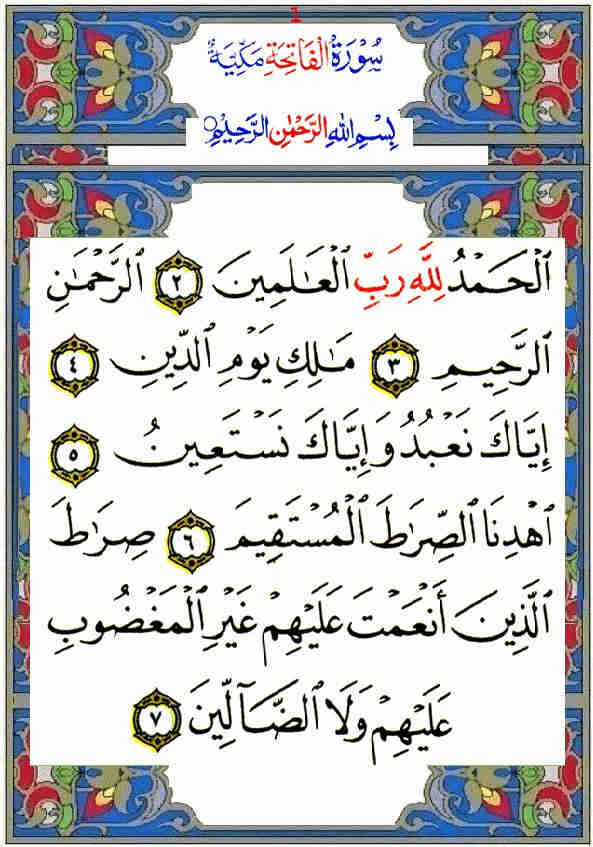 1
سُوْرَةُ الْفَاتِحَةِ مَكِّيَّةٌ
بِسْمِ اللهِ الرَّحْمٰنِ الرَّحِيْمِ
ٱلْحَمْدُ لِلَّهِ رَبِّ ٱلْعَٰلَمِينَ ٢ ٱلرَّحْمَٰنِ
ٱلرَّحِيمِ ٣ مَٰلِكِ يَوْمِ ٱلدِّينِ ٤
إِيَّاكَ نَعْبُدُ وَإِيَّاكَ نَسْتَعِينُ ٥
ٱهْدِنَا ٱلصِّرَٰطَ ٱلْمُسْتَقِيمَ ٦ صِرَٰطَ
ٱلَّذِينَ أَنْعَمْتَ عَلَيْهِمْ غَيْرِ ٱلْمَغْضُوبِ
عَلَيْهِمْ وَلَا ٱلضَّآلِّينَ ٧